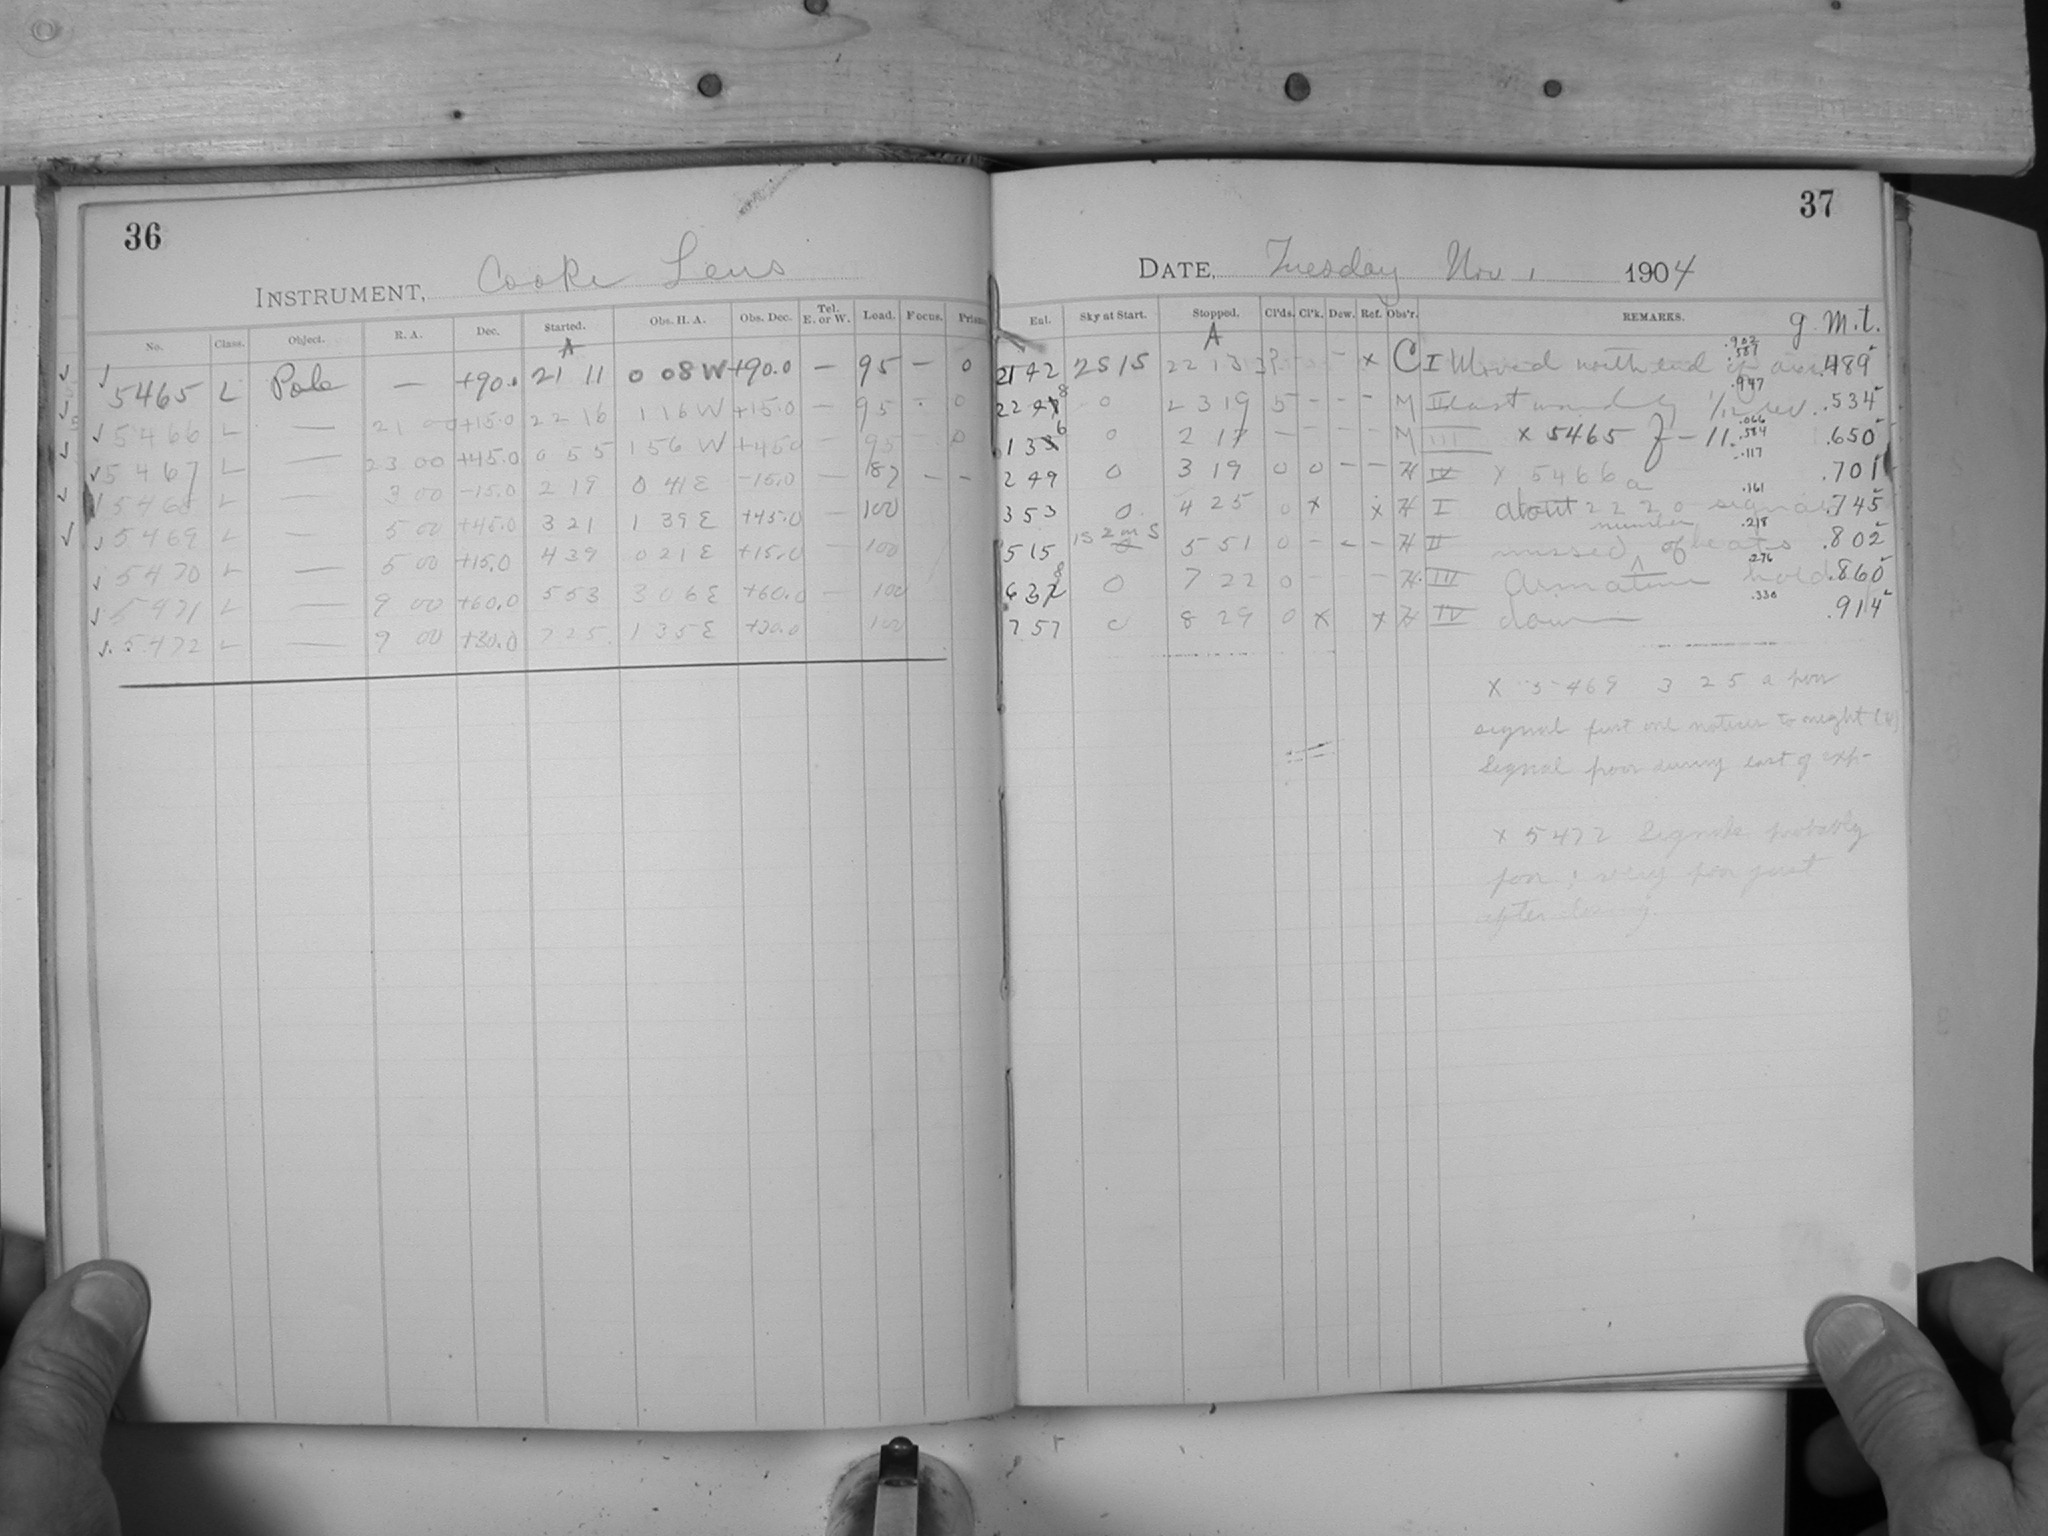 36
INSTRUMENT, Cooke Lens
No. Class. Object. R. A. Dec. Started. Obs. H. A. Obs. Dec. Tel. E. or W. Load. Focus. Prism.
A
5465 L Pole — +90.0 21 11 0 08 W +90.0 — 95 — 0
5466 L — 21 00 +15.0 22 16 1 16 W +15.0 — 95 - 0
5467 L — 23 00 +45.0 0 55 1 56 W +45.0 — 95 0
5468 L — 3 00 -15.0 2 19 0 41 E -15.0 — 187 — —
5469 L — 5 00 +45.0 3 21 1 39 E +45.0 100
5470 L — 5 00 +15.0 4 39 0 21 E +15.0 — 100
5471 L — 9 00 +60.0 5 53 3 06 E +60.0 — 100
5472 L — 9 00 +30.0 7 25 1 35 E +30.0 100
37
DATE, Tuesday Nov. 1 1904
Eql. Sky at Start. Stopped. Cl'ds. Cl'k. Dew. Ref. Obs'r. REMARKS. G. M. t.
A
21 42 2S15 22 13 - x C I Moved north end of .902 .489
22 48 0 23 19 5 - - - M II east .947 .534
1 36 0 2 17 - - - - M III x 5465 - 11. .066 .584 .650
2 49 0 3 19 0 0 - - H IV x 5466 a .117 .701
3 53 0 4 25 0 x x H I about 22 20 signal .161 .745
5 15 1S 2m S 5 51 0 - - - H II missed number of beats .218 .802
6 38 0 7 22 0 - - - H. III Armature held .276 .860
7 57 0 8 29 0 x x H IV down .330 .914
x 5469 3 25 a poor
signal first one notices to night (H)
Signal poor during last of exp-
x 5472 Signals probably
poor; very poor just
after closing.